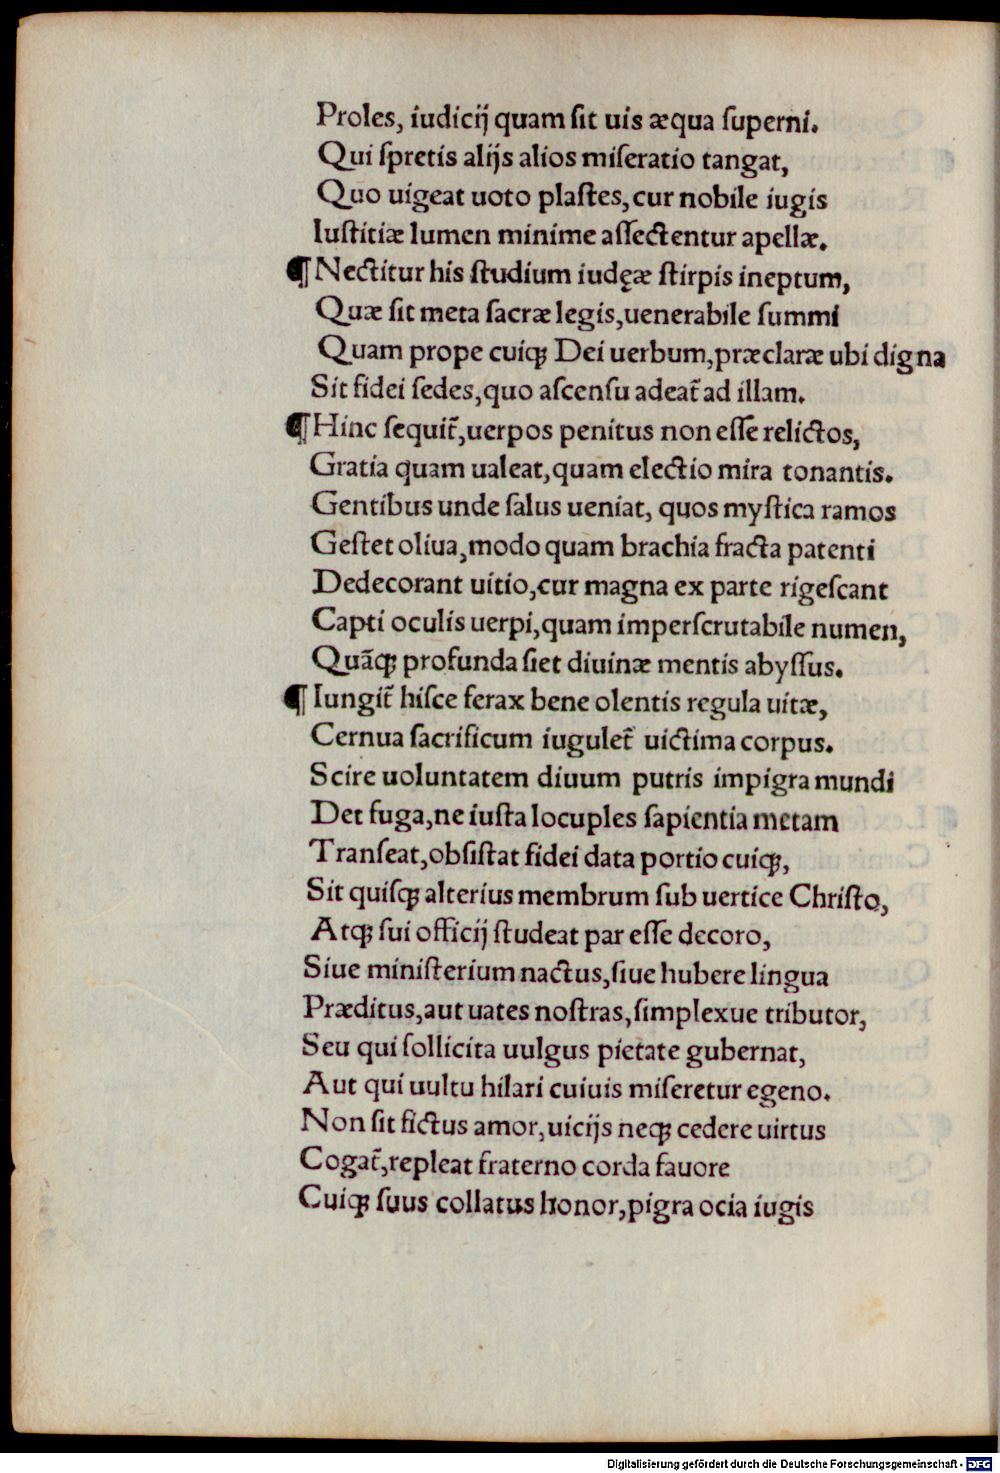 Proles, iudicij quam ſit uis æqua ſuperni.
Qui ſpretis alijs alios miſeratio tangat,
Quo uigeat uoto plaſtes, cur nobile iugis
Iuſtitiæ lumen minime aſſectentur apellæ.
¶ Nectitur his ſtudium iudęæ ſtirpis ineptum,
Quæ ſit meta ſacræ legis, uenerabile ſummi
Quam prope cuiqꝫ Dei uerbum, præclaræ ubi digna
Sit fidei ſedes, quo aſcenſu adeat᷑ ad illam.
¶ Hinc ſequit᷑, uerpos penitus non eſſe relictos,
Gratia quam ualeat, quam electio mira tonantis.
Gentibus unde ſalus ueniat, quos myſtica ramos
Geſtet oliua, modo quam brachia fracta patenti
Dedecorant uitio, cur magna ex parte rigeſcant
Capti oculis uerpi, quam imperſcrutabile numen,
Quãqꝫ profunda ſiet diuinæ mentis abyſſus.
¶ Iungit᷑ hiſce ferax bene olentis regula uitæ,
Cernua ſacrificum iugulet᷑ uictima corpus.
Scire uoluntatem diuum putris impigra mundi
Det fuga, ne iuſta locuples ſapientia metam
Tranſeat, obſiſtat fidei data portio cuiqꝫ,
Sit quiſqꝫ alterius membrum ſub uertice Chriſto,
Atqꝫ ſui officij ſtudeat par eſſe decoro,
Siue miniſterium nactus, ſiue hubere lingua
Præditus, aut uates noſtras, ſimplexue tributor,
Seu qui ſollicita uulgus pietate gubernat,
Aut qui uultu hilari cuiuis miſeretur egeno.
Non ſit fictus amor, uicijs neqꝫ cedere uirtus
Cogat᷑, repleat fraterno corda fauore
Cuiqꝫ ſuus collatus honor, pigra ocia iugis
Digitalisierung gefördert durch die Deutsche Forschungsgemeinschaft - DFG